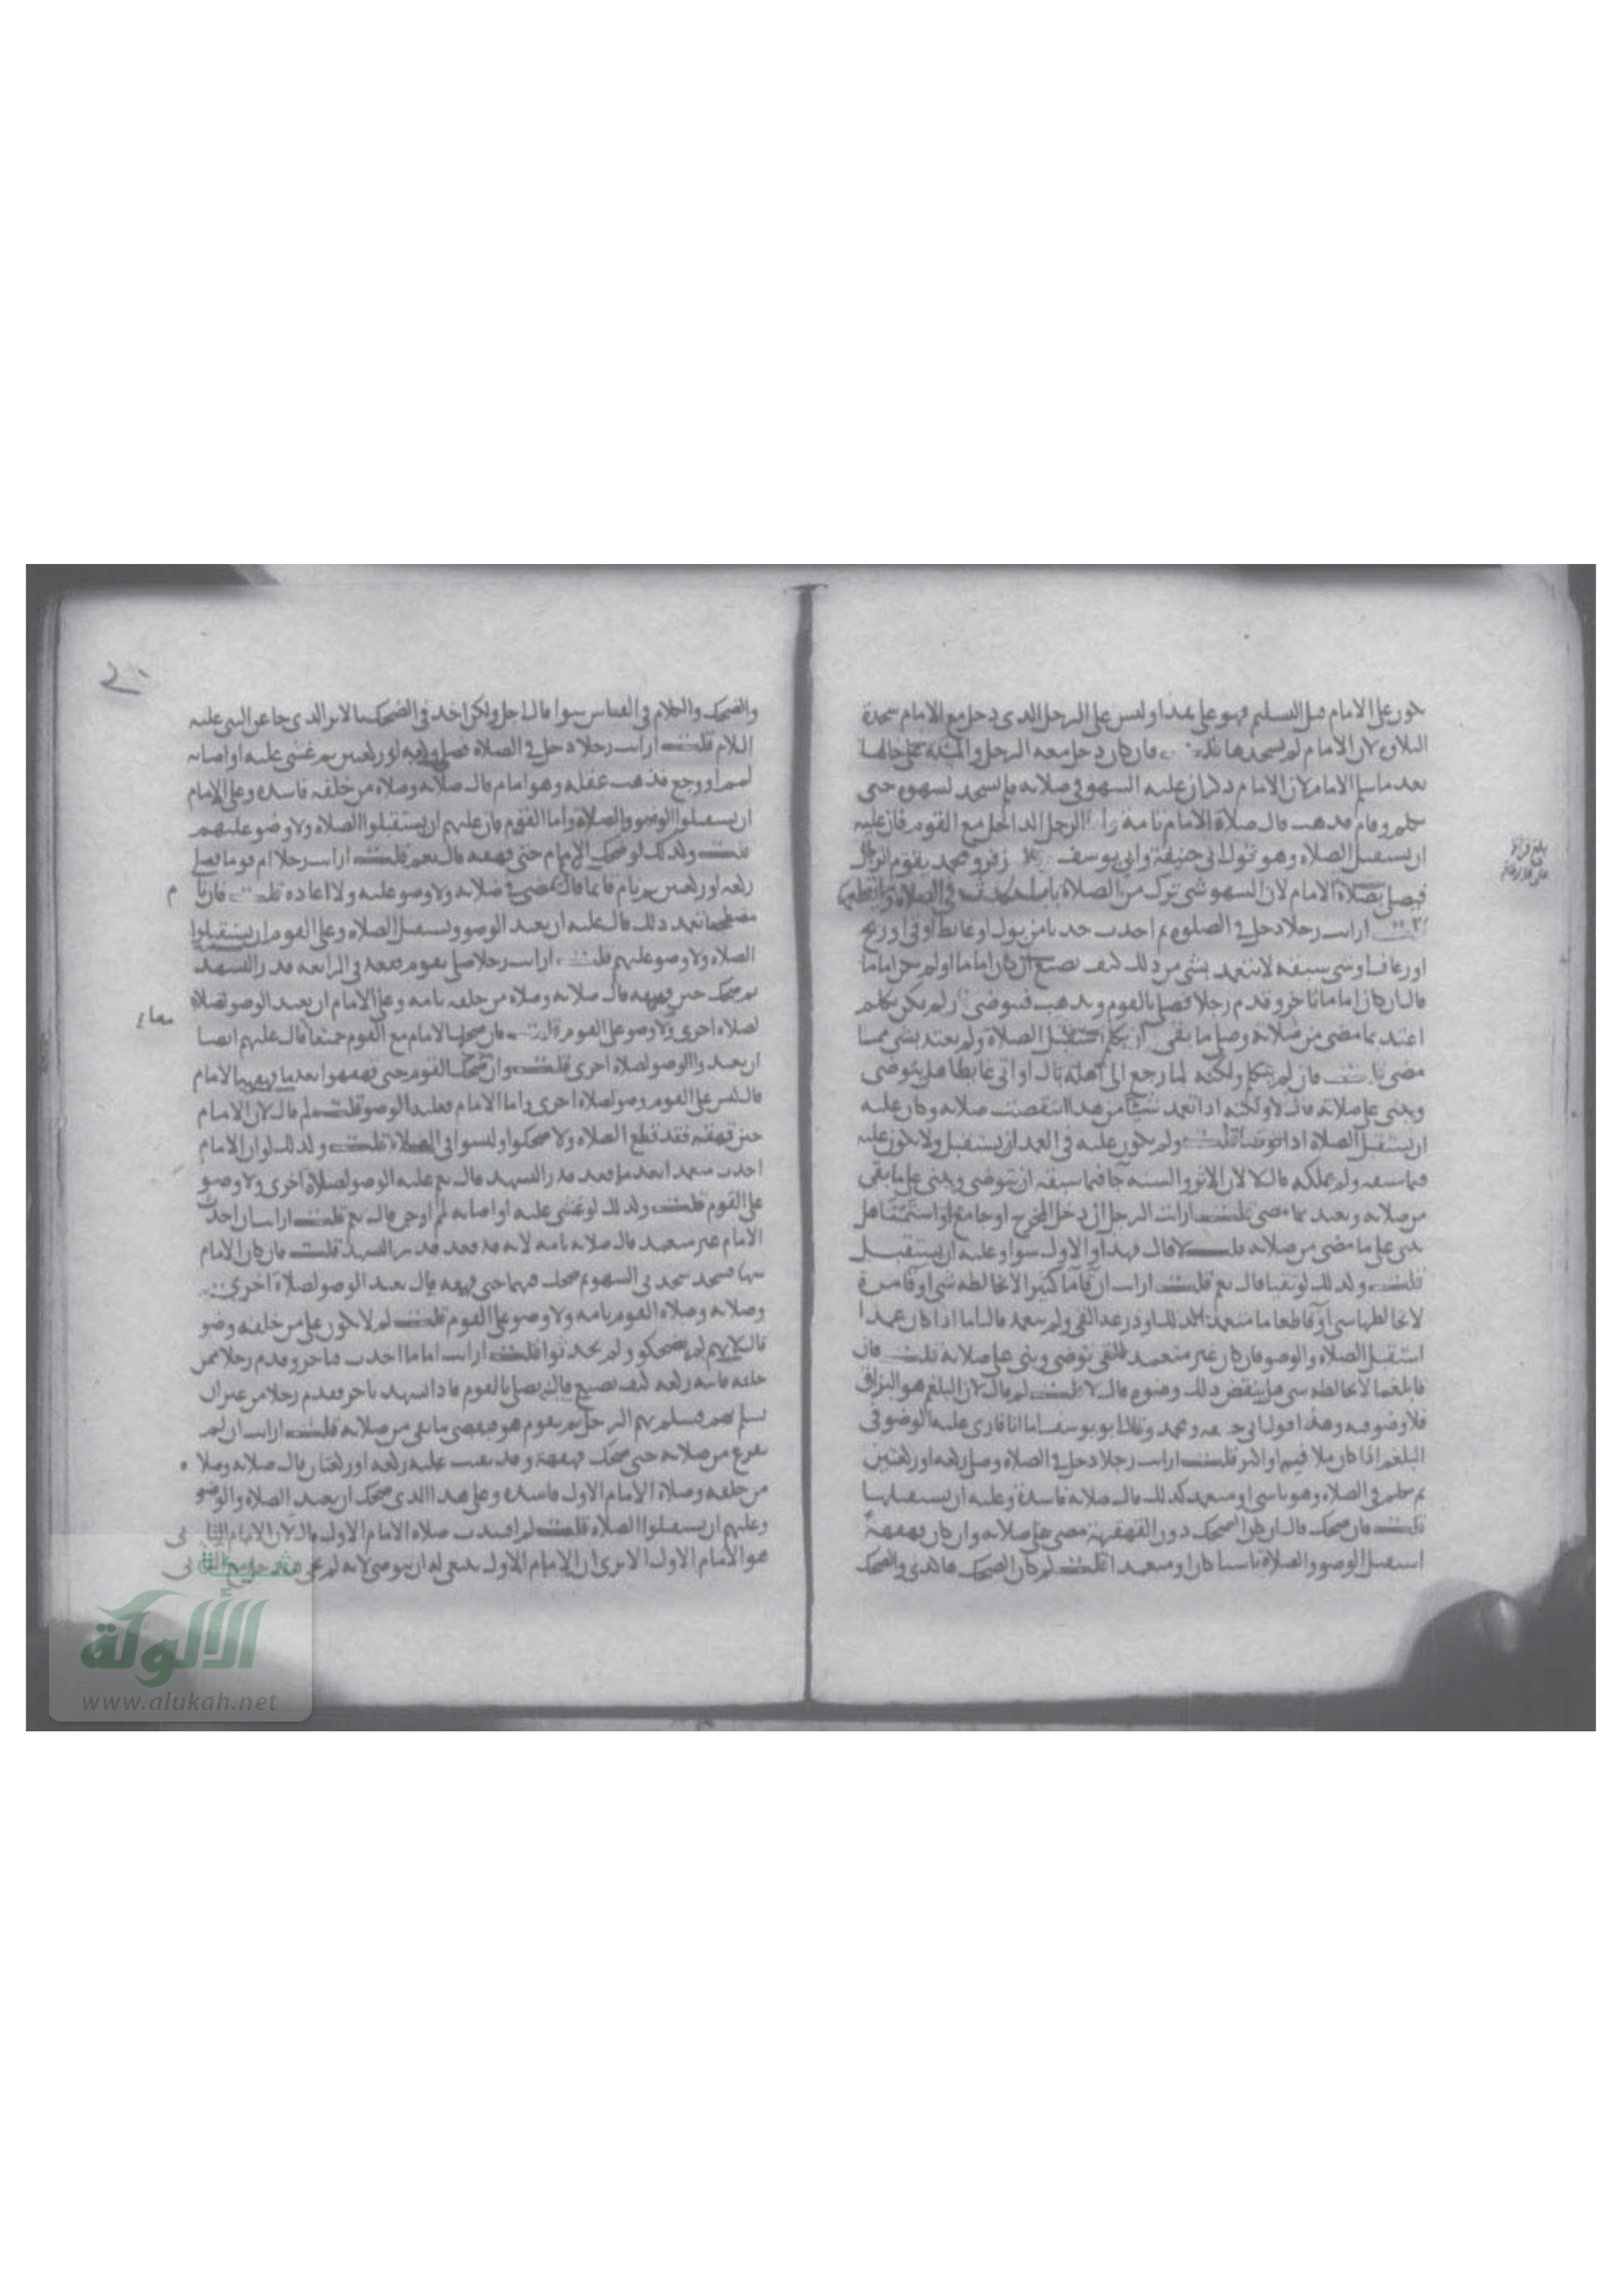 يكون على الامام قبل التسليم فهو على هذا وليس على الرجل الذي دخل مع الامام سجدة
التلاوة لان الامام لم يسجدها قلت فان كان دخل معه الرجل والمسئلة على حالها
بعد ما سلم الامام لان الامام ذكر ان عليه السهو في صلاته فلم يسجد لسهوه حتى
تكلم وقام فذهب قال صلاة الامام تامة الرجل الداخل مع القوم فان عليه
ان يستقبل الصلاه وهو قول ابي حنيفة وابي يوسف زفر ومحمد يقوم الرجل
فيصلي بصلاة الامام لان السهو شي ترك من الصلاة باب الحدث في الصلاة وما يقطعها
قلت ارايت رجلا دخل في الصلوه ثم احدث حدثا من بول او غايط او قي او ريح
او رعاف او شي سبقه لا يتعمد بشي من ذلك كيف يصنع ان كان اماما او لم يكن اماما
قال ان كان اماما تاخر وقدم رجلا فصلى بالقوم ويذهب فيتوضى ان لم يكن تكلم
اعتد بما مضى من صلاته وصلى ما بقي وان تكلم استقبل الصلاة ولم يعتد بشي مما
مضى قلت فان لم يتكلم ولكنه لما رجع الى اهله بال او اتى غايطا هل يتوضى
ويبني على صلاته قال لا ولكنه اذا تعمد شيئا من هذا انتقضت صلاته وكان عليه
ان يستقبل الصلاة اذا توضا قلت ولم يكون عليه في العمد ان يستقبل ولا يكون عليه
فيما سبقه ولم يملكه قال لان الاثر والسنه جا فيما سبقه ان يتوضى ويبني على ما بقي
من صلاته ويعتد بما مضى قلت ارايت الرجل ان دخل المخرج او جامع او استمشا هل
يبني على ما مضى من صلاته قلت لا قال فهذا والاول سوا وعليه ان يستقبل
قلت وكذلك لو تقيا قال نعم قلت ارايت ان قا ما كثيرا لا يخالطه شي او قا مرة
لا يخالطها شي او قا طعاما متعمدا لذلك او ذرعه القي ولم يتعمد قال اما اذا كان عمدا
استقبل الصلاه والوضو فان كان غير متعمد للقي توضى وبنى على صلاته قلت فان
قا بلغما لا يخالطه شي هل ينقض ذلك وضوه قال لا قلت لم قال لان البلغم هو البزاق
فلا وضو فيه وهذا قول ابي حنيفه ومحمد وقال ابو يوسف اما انا فارى عليه الوضو في
البلغم اذا كان ملا فيه او اكثر قلت ارايت رجلا دخل في الصلاه وصلى ركعه او ركعتين
ثم تكلم في الصلاه وهو ناسي او متعمد كذلك قال صلاته فاسدة وعليه ان يستقبلها
قلت فان ضحك قال ان كان الضحك دون القهقهة مضى على صلاته وان كان قهقهة
استقبل الوضو والصلاة ناسيا كان او متعمدا قلت لم كان الضحك هاكذى والضحك
بلغ قراءة
والضحك والكلام في القياس سوا قال اجل ولكن اخذ في الضحك بالاثر الذي جا عن النبي عليه
السلام قلت ارايت رجلا دخل في الصلاة فصلى ركعه او ركعتين ثم غشي عليه او اصابه
لمم او وجع فذهب عقله وهو امام قال صلاته وصلاه من خلفه فاسده وعلى الامام
ان يستقبل الوضو والصلاة واما القوم فان عليهم ان يستقبلوا الصلاه ولا وضو عليهم
قلت وكذلك لو ضحك الامام حتى قهقه قال نعم قلت ارايت رجلا ام قوما فصلى
ركعه او ركعتين ثم نام قايما قال يمضي في صلاته ولا وضو عليه ولا اعاده قلت فان نام
مضطجعا تعمد ذلك قال عليه ان يعيد الوضو ويستقبل الصلاه وعلى القوم ان يستقبلوا
الصلاه ولا وضو عليهم قلت ارايت رجلا صلى بقوم فقعد في الرابعه قدر التشهد
ثم ضحك حتى قهقه قال صلاته وصلاه من خلفه تامه وعلى الامام ان يعيد الوضو لصلاة
لصلاه اخرى ولا وضو على القوم قلت فان ضحك الامام مع القوم جميعا قال عليهم ايضا
ان يعيدوا الوضو لصلاة اخرى قلت وان ضحك القوم حتى قهقهوا بعد ما قهقه الامام
قال ليس على القوم وضو لصلاه اخرى واما الامام فعليه الوضو قلت لم قال لان الامام
حين قهقه فقد قطع الصلاه ولا ضحكوا وليسوا في الصلاه قلت وكذلك لو ان الامام
احدث متعمدا بعد ما قعد قدر التشهد قال نعم عليه الوضو لصلاه اخرى ولا وضو
على القوم قلت وكذلك لو غشي عليه او اصابه لمم او وجع قال نعم قلت ارايت ان احدث
الامام غير متعمد قال صلاته تامه لانه قد قعد قدر التشهد قلت فان كان الامام
سها فسجد سجدتي السهو ثم ضحك فيهما حتى قهقه قال يعيد الوضو لصلاة اخرى
وصلاته وصلاه القوم تامه ولا وضو على القوم قلت لم لا يكون على من خلفه وضو
قال لانهم لم يضحكو ولم يحدثوا قلت ارايت اماما احدث فتاخر وقدم رجلا ممن
خلفه فاتته ركعه كيف يصنع قال يصلي بالقوم فاذا تشهد تاخر فقدم رجلا من غير ان
يسلم بهم فيسلم بهم الرجل ثم يقوم هو فيقضي ما بقي من صلاته قلت ارايت ان لم
يفرغ من صلاته حتى ضحك قهقهة وقد بقيت عليه ركعه او ركعتان قال صلاته وصلاه
من خلفه وصلاة الامام الاول فاسده وعلى هذا الذي ضحك ان يعيد الصلاة والوضو
وعليهم ان يستقبلوا الصلاه قلت لم افسدت صلاه الامام الاول قال لان الامام الثاني
هو الامام الاول الا ترى ان الامام الاول ينبغي له ان يتوضى لانه لم
شبكة
الألوكة
www.alukah.net